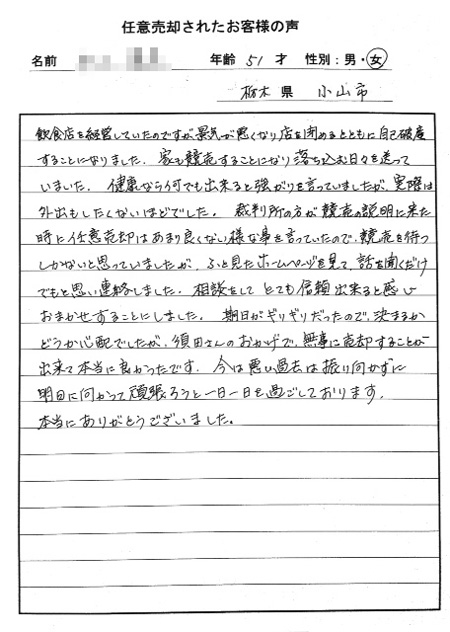 任意売却されたお客様の声
名前 年齢 51 才 性別:男・女
栃木 県 小山市
飲食店を経営していたのですが景気が悪くなり店を閉めるとともに自己破産
することになりました。家も競売することになり落ち込む日々を送って
いました。健康なら何でも出来ると強がりを言っていましたが、実際は
外出もしたくないほどでした。裁判所の方が競売の説明に来た
時に任意売却はあまり良くない様な事を言っていたので、競売を待つ
しかないと思っていましたが、ふと見たホームページを見て、話を聞くだけ
でもと思い連絡しました。相談をしてとても信頼出来ると感じ
おまかせすることにしました。期日がギリギリだったので、決まるか
どうか心配でしたが、須田さんのおかげで、無事に売却することが
出来て本当に良かったです。今は悪い過去は振り向かずに
明日に向かって頑張ろうと一日一日を過ごしております。
本当にありがとうございました。